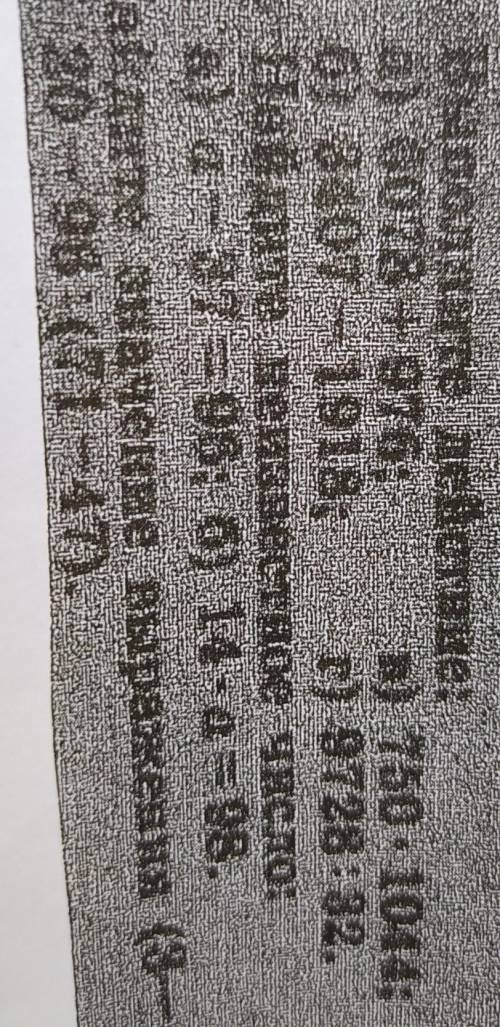 Выполните действие:
а) 6078 + 976; в) 750 · 1044;
б) 3207 – 1918; г) 8728 : 32.
Найдите неизвестное число:
а) a – 37 = 96; б) 14 · a = 98.
значение выражения (3
20 – 96 : (71 – 47).